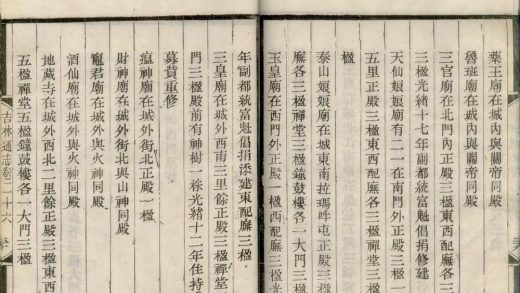 藥王廟在城內與關帝同殿
魯班廟在城內與關帝同殿
三官廟在北門內正殿三楹東西配廡各
三楹光緒十七年副都統富魁倡捐修建
天仙娘娘廟有二一在南門外正殿三楹一在
五里正殿三楹東西配廡各三楹禪堂三
楹
泰山娘娘廟在城東南拉瑪咩屯正殿三楹
廡各三楹禪堂三楹鐘鼓樓各一大門三
玉皇廟在西門外正殿三楹西配廡三楹光
年副都統富魁倡捐添建東配廡三楹
三皇廟在城外西南三里餘正殿三楹禪堂
門三楹殿前有神樹一株光緒十二年住持
募貲重修
瘟神廟在城外街北正殿一楹
財神廟在城外街北與山神同殿
竈君廟在城外與火神同殿
酒仙廟在城外與火神同殿
地藏寺在城外西北二里餘正殿三楹東西
五楹禪堂五楹鐘鼓樓各一大門三楹
吉林通志卷二十六